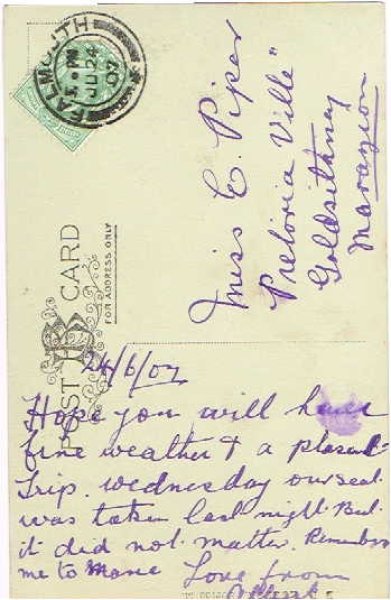 FALMOUTH
1 PM
JU 24
07
Miss E. Piper
"Pretoria Ville"
Goldsithney
Marazion
POST CARD
FOR ADDRESS ONLY
24/6/07
Hope you will have
fine weather & a pleasant
Trip. wednesday our seat
was taken last night But
it did not matter. Remember
me to
Love from